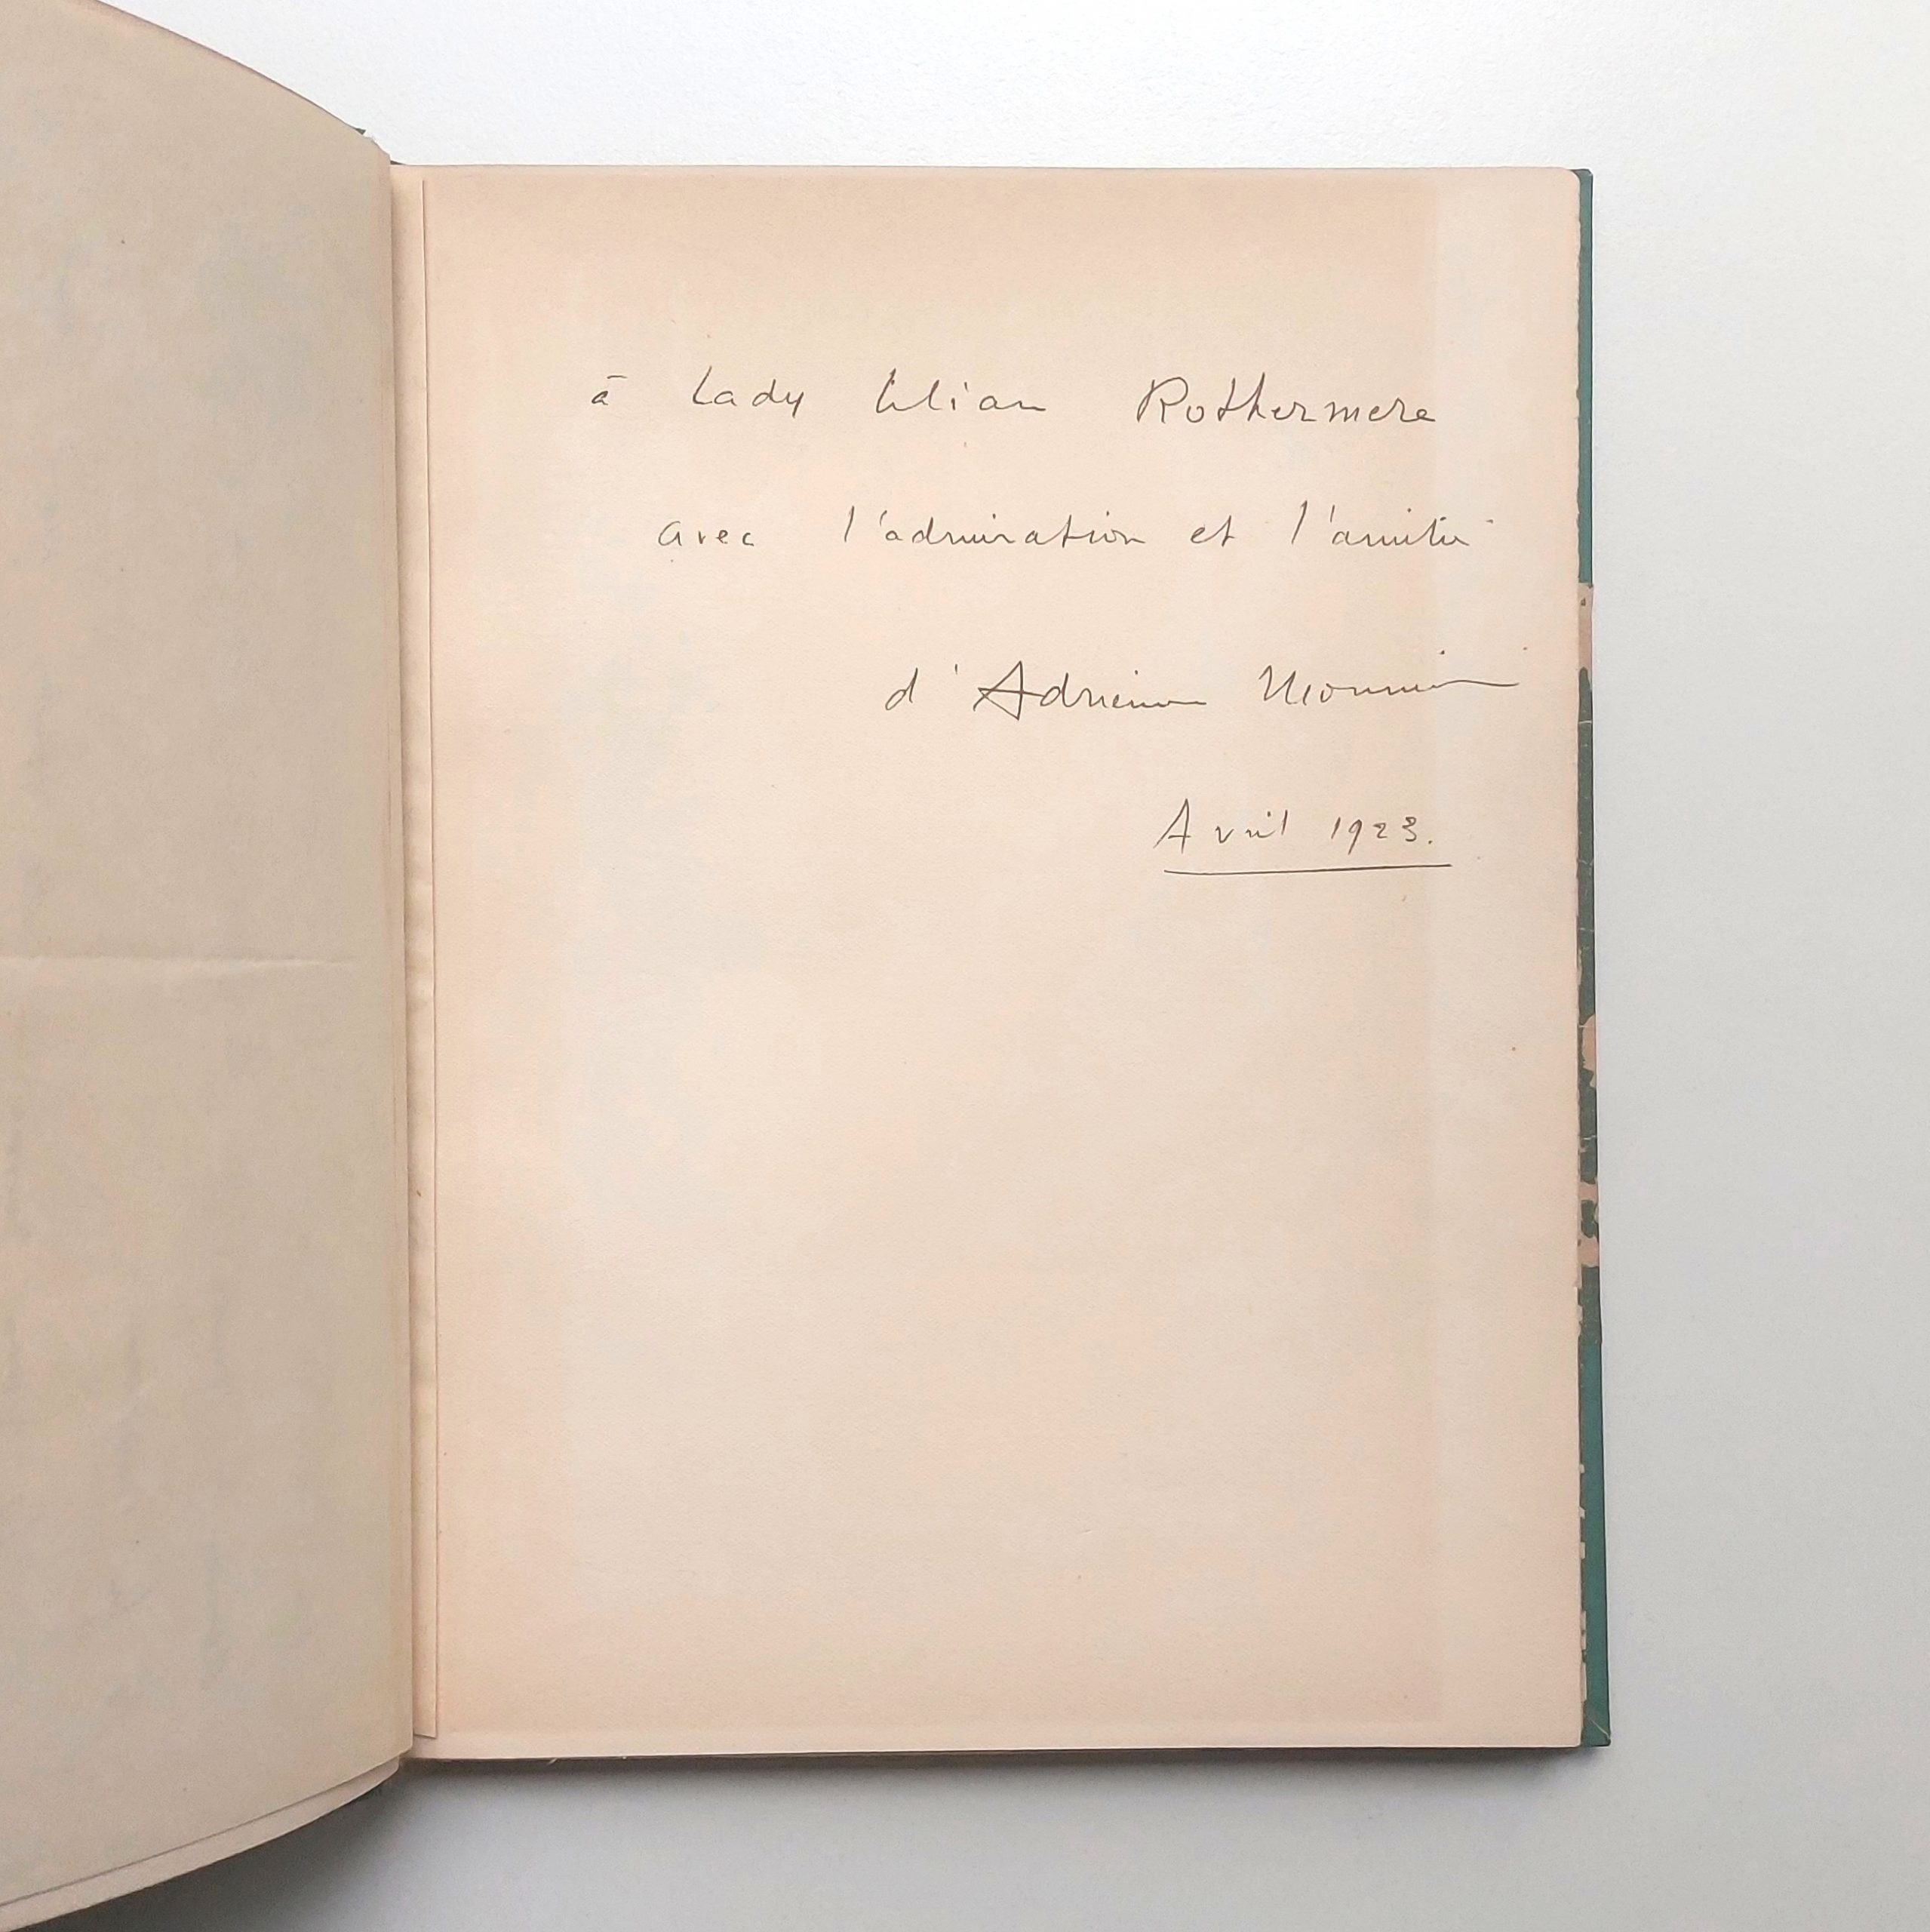 à Lady Lilian Rothermere
avec l'admiration et l'amitié
d'Adrienne Monnier
Avril 1923.